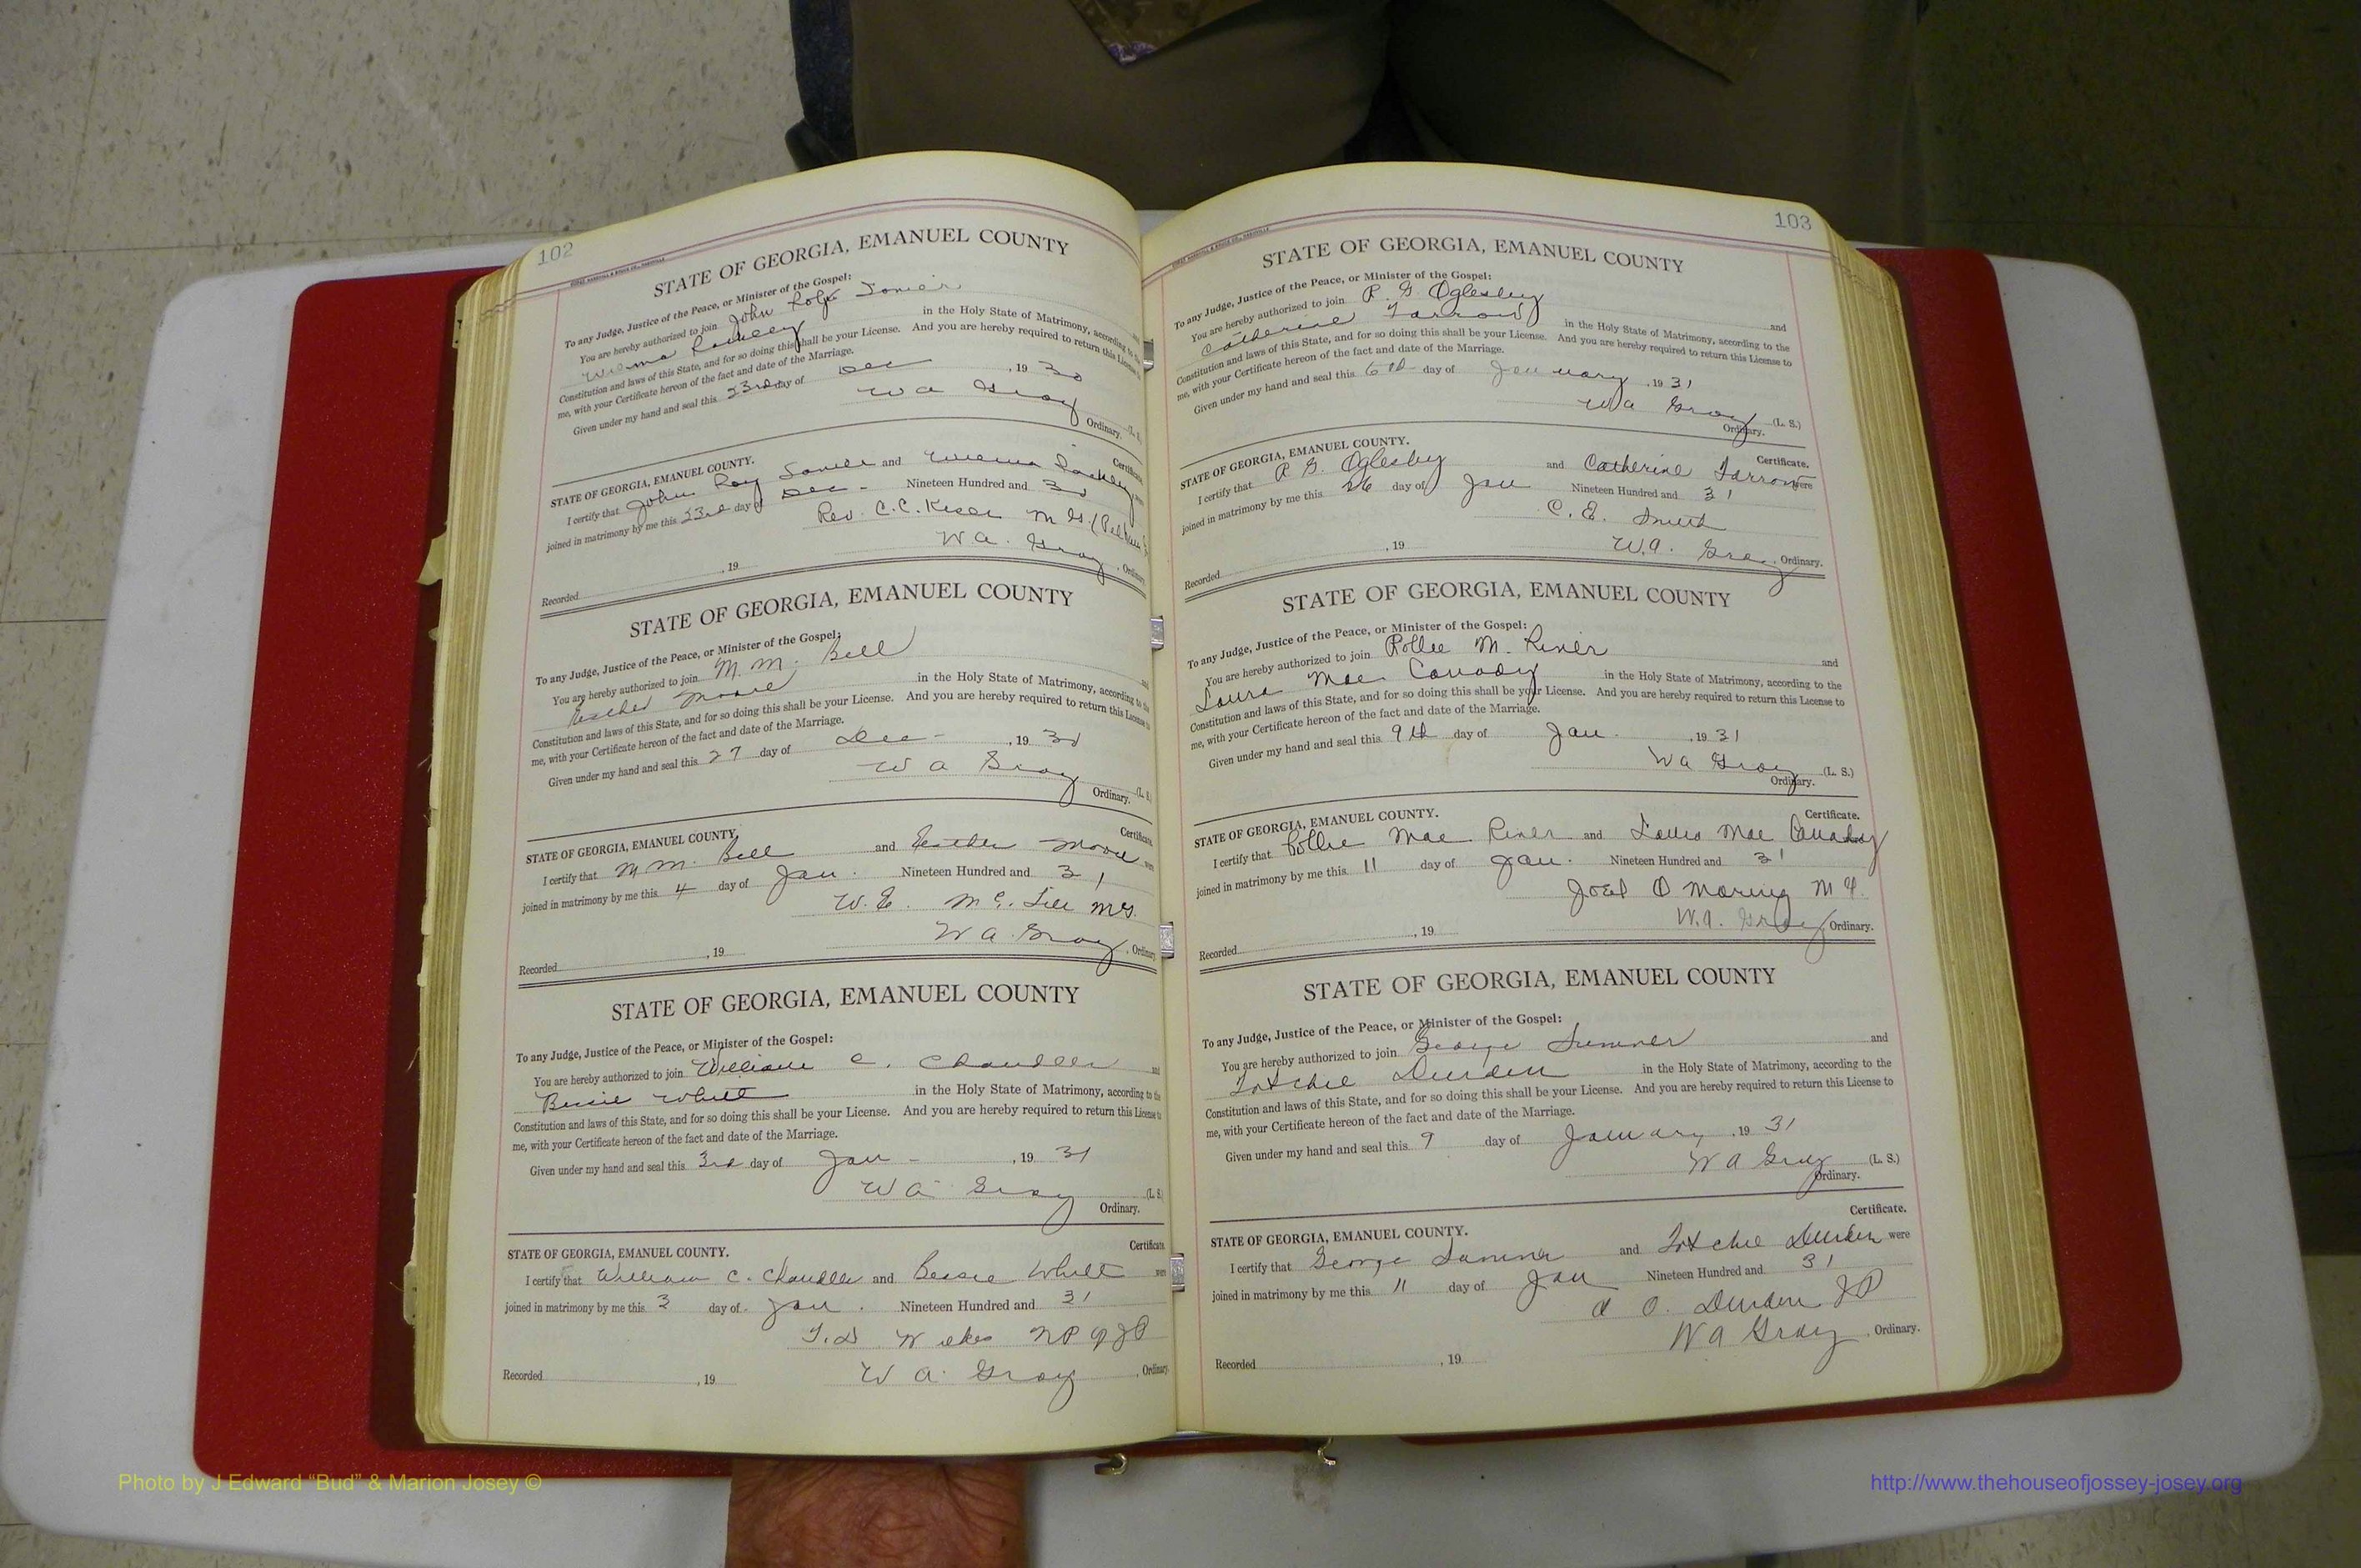 102
STATE OF GEORGIA, EMANUEL COUNTY
To any Judge, Justice of the Peace, or Minister of the Gospel:
You are hereby authorized to join John Roy Lanier
in the Holy State of Matrimony, according to the
Constitution and laws of this State, and for so doing this shall be your License. And you are hereby required to return this License to
me, with your Certificate hereon of the fact and date of the Marriage.
Given under my hand and seal this 23rd day of Dec , 19 30
W A Gray (L. S.)
Ordinary.
Certificate.
STATE OF GEORGIA, EMANUEL COUNTY.
I certify that John Roy Lanier and
joined in matrimony by me this 23rd day of Dec - Nineteen Hundred and 30
Rev. C. C. M. G.
Recorded , 19 W. A. Gray , Ordinary
STATE OF GEORGIA, EMANUEL COUNTY
To any Judge, Justice of the Peace, or Minister of the Gospel:
You are hereby authorized to join M. M. Bell and
Esther Moore in the Holy State of Matrimony, according to the
Constitution and laws of this State, and for so doing this shall be your License. And you are hereby required to return this License to
me, with your Certificate hereon of the fact and date of the Marriage.
Given under my hand and seal this 27 day of Dec - , 19 30
W A Gray (L. S.)
Ordinary.
Certificate.
STATE OF GEORGIA, EMANUEL COUNTY.
I certify that M M. Bell and Esther Moore were
joined in matrimony by me this 4 day of Jan. Nineteen Hundred and 31
W. E. Mc. MG.
Recorded , 19 W A. Gray , Ordinary
STATE OF GEORGIA, EMANUEL COUNTY
To any Judge, Justice of the Peace, or Minister of the Gospel:
You are hereby authorized to join William C. Chandler and
Bessie White in the Holy State of Matrimony, according to the
Constitution and laws of this State, and for so doing this shall be your License. And you are hereby required to return this License to
me, with your Certificate hereon of the fact and date of the Marriage.
Given under my hand and seal this 3rd day of Jan - , 19 31
W A Gray (L. S.)
Ordinary.
Certificate
STATE OF GEORGIA, EMANUEL COUNTY.
I certify that William C. Chandler and Bessie White were
joined in matrimony by me this 3 day of Jan. Nineteen Hundred and 31
NP & JP
Recorded , 19 W A. Gray , Ordinary
103
STATE OF GEORGIA, EMANUEL COUNTY
To any Judge, Justice of the Peace, or Minister of the Gospel:
You are hereby authorized to join R. G. Oglesby and
Catherine Farrow in the Holy State of Matrimony, according to the
Constitution and laws of this State, and for so doing this shall be your License. And you are hereby required to return this License to
me, with your Certificate hereon of the fact and date of the Marriage.
Given under my hand and seal this 6th day of January , 19 31
W A Gray (L. S.)
Ordinary.
Certificate.
STATE OF GEORGIA, EMANUEL COUNTY.
I certify that R G. Oglesby and Catherine Farrow were
joined in matrimony by me this 26 day of Jan Nineteen Hundred and 31
C. E. Smith
Recorded , 19 W. A. Gray , Ordinary.
STATE OF GEORGIA, EMANUEL COUNTY
To any Judge, Justice of the Peace, or Minister of the Gospel:
You are hereby authorized to join Rollie M. Riner and
Laura Mae Canady in the Holy State of Matrimony, according to the
Constitution and laws of this State, and for so doing this shall be your License. And you are hereby required to return this License to
me, with your Certificate hereon of the fact and date of the Marriage.
Given under my hand and seal this 9th day of Jan. , 19 31
W A Gray (L. S.)
Ordinary.
Certificate.
STATE OF GEORGIA, EMANUEL COUNTY.
I certify that Rollie Mae Riner and Laura Mae Canady
joined in matrimony by me this 11 day of Jan. Nineteen Hundred and 31
Joel O M G.
Recorded , 19 W. A. Gray , Ordinary.
STATE OF GEORGIA, EMANUEL COUNTY
To any Judge, Justice of the Peace, or Minister of the Gospel:
You are hereby authorized to join George Sumner and
Durden in the Holy State of Matrimony, according to the
Constitution and laws of this State, and for so doing this shall be your License. And you are hereby required to return this License to
me, with your Certificate hereon of the fact and date of the Marriage.
Given under my hand and seal this 9 day of January , 19 31
W A Gray (L. S.)
Ordinary.
Certificate.
STATE OF GEORGIA, EMANUEL COUNTY.
I certify that George Sumner and Durden were
joined in matrimony by me this 11 day of Jan Nineteen Hundred and 31
A O. Durden JP
Recorded , 19 W A Gray , Ordinary.
Photo by J Edward “Bud” & Marion Josey ©
http://www.thehouseofjossey-josey.org